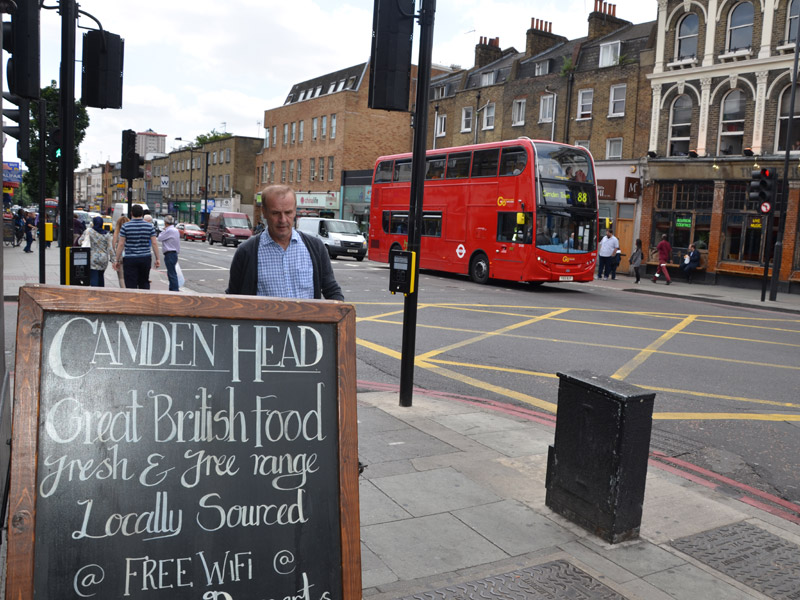 CAMDEN HEAD
Great British Food
Fresh & Free range
Locally Sourced
@ FREE WIFI @
Camden Town 88